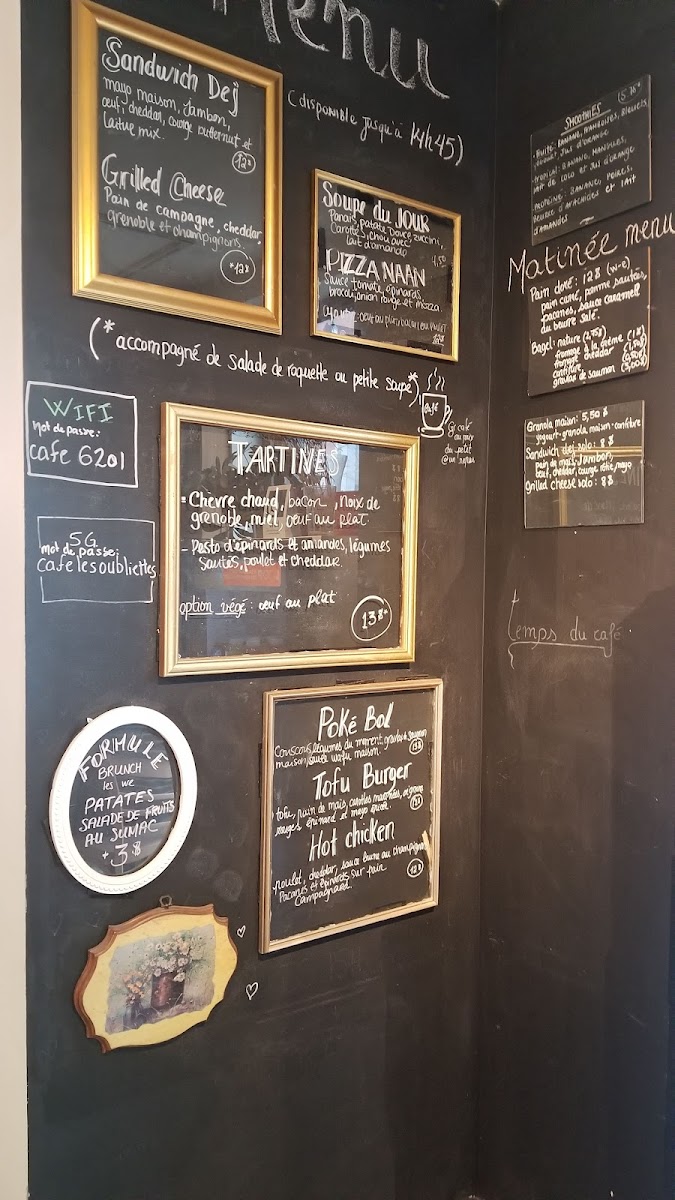 Menu
(disponible jusqu'à 14h45)
Sandwich Dej
mayo maison, jambon,
œuf, cheddar, courge butternut et
laitue mix.
12$
Grilled Cheese
Pain de campagne, cheddar,
grenoble et champignons.
*12$
Soupe du JOUR
Panais, patate douce, zuccini,
Carottes, chou avec
lait d'amande
4,50
PIZZA NAAN
Sauce tomate, épinards,
brocoli, onion rouge et mozza.
(* accompagné de salade de roquette ou petite soupe*)
café
WIFI
mot de passe:
cafe 6201
5G
mot de passe:
cafelesoubliettes
TARTINES
- Chèvre chaud, bacon, noix de
grenoble, miel, œuf au plat.
- Pesto d'épinards et amandes, légumes
sautés, poulet et cheddar
option végé: œuf au plat
13$*
FORMULE
BRUNCH
les we
PATATES
SALADE DE FRUITS
AU SUMAC
+ 3$
Poké Bol
Couscous, légumes du moment, gravlax saumon
maison, sauce wafu maison.
Tofu Burger
tofu, pain de maïs, carottes marinées, oignons
rouges, épinard et mayo épicée.
Hot chicken
poulet, cheddar, sauce brune au champignon
Pacanes et épinards, sur pain
Campagnard.
12$
SMOOTHIES
Matinée menu
Pain doré: 12$ (w-e)
pain curé, pomme sautées,
pacanes, sauce caramel
au beurre salé.
Bagel: nature (2,75$)
fromage à la crème (1$)
fromage cheddar (1,50$)
confiture
gravlax de saumon (3,00$)
Granola maison: 5,50$
yogourt-granola maison-confiture
Sandwich dej solo: 8$
pain de maïs, Jambon,
œuf, cheddar, courge rôtie, mayo
Grilled cheese solo: 8$
temps du café